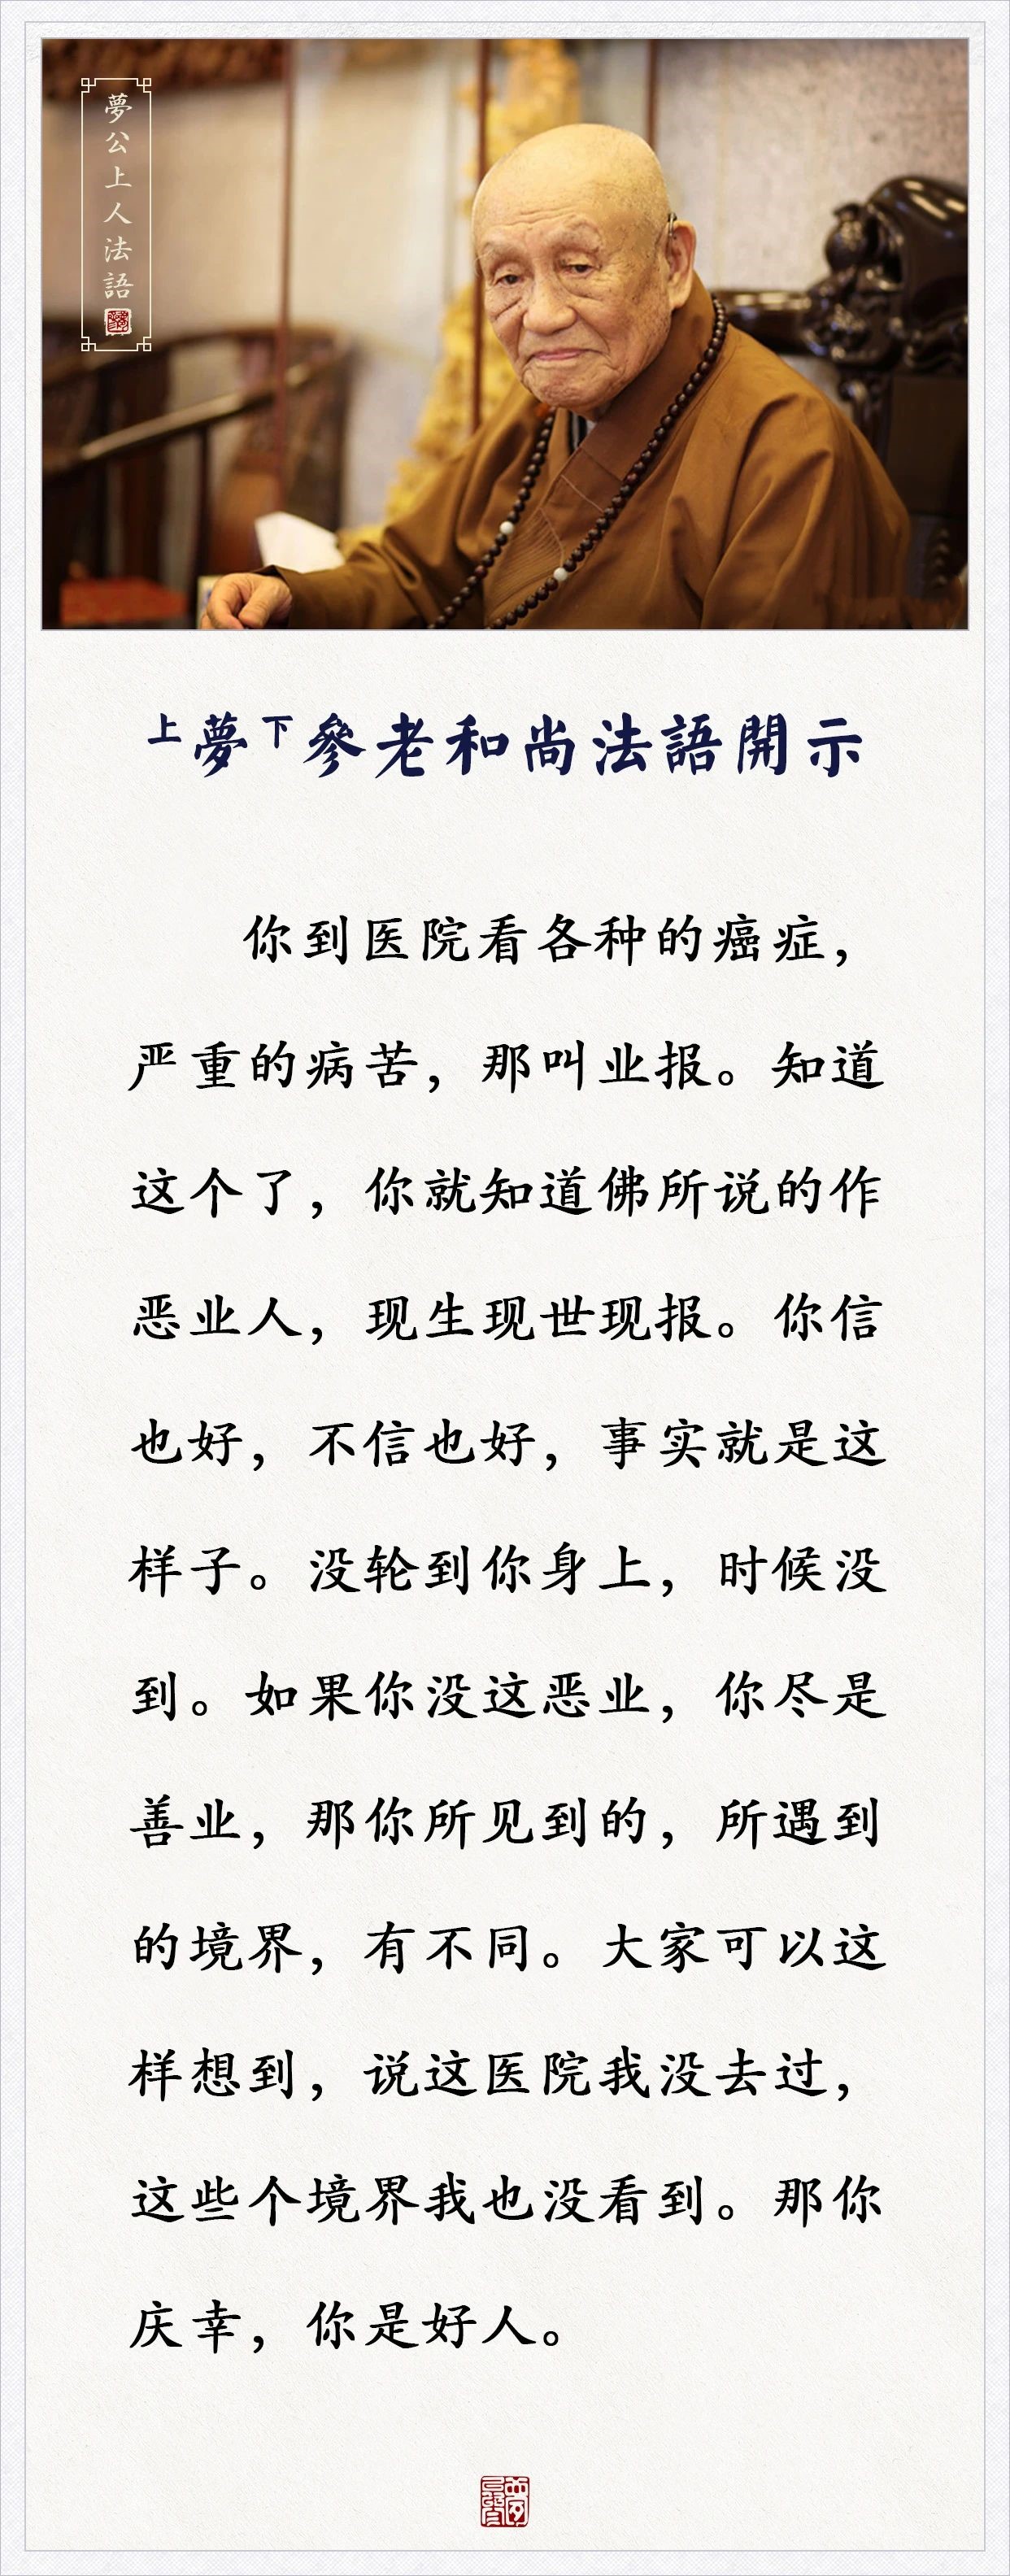 夢公上人法語
上夢下參老和尚法語開示
你到医院看各种的癌症，
严重的病苦，那叫业报。知道
这个了，你就知道佛所说的作
恶业人，现生现世现报。你信
也好，不信也好，事实就是这
样子。没轮到你身上，时候没
到。如果你没这恶业，你尽是
善业，那你所见到的，所遇到
的境界，有不同。大家可以这
样想到，说这医院我没去过，
这些个境界我也没看到。那你
庆幸，你是好人。